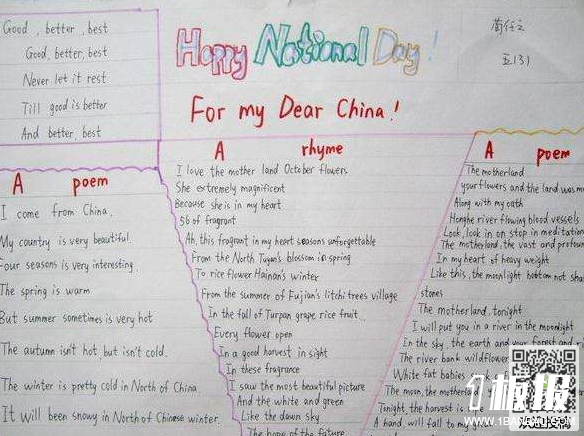 Good, better, best
Good, better, best
Never let it rest
Till good is better
And better, best
Happy National Day!
For my Dear China!
五(3)
A poem
I come from China.
My country is very beautiful.
Four seasons is very interesting.
The spring is warm
But summer sometimes is very hot
The autumn isn't hot, but isn't cold.
The winter is pretty cold in North of China.
It will been snowy in North of Chinese winter.
A rhyme
I love the mother land October flowers
She extremely magnificent
Because she is in my heart
56 of fragrant
Ah, this fragrant in my heart seasons unforgettable
From the North Tujan's blossom in spring
To rice flower Hainan's winter
From the summer of Fujian's litchi trees village
In the fall of Turpan grape rice fruit
Every flower open
In a good harvest in sight
In these fragrance
I saw the most beautiful picture
And the white and green
Like the dawn sky
The hope of the future
A poem
The motherland
your flowers and the land was
Along with my oath
Honghe river flowing blood vessels
Look, look in on stop in meditation
The motherland, the vast and
In my heart of heavy weight
Like this, the moonlight bottom not
stones
The motherland, tonight
I will put you in a river in the moonlight
In the sky, the earth and your forest and
The river bank wildflower
White fat babies
The moon, the motherland
Tonight, the harvest is the
A hand, will fall to my
板报